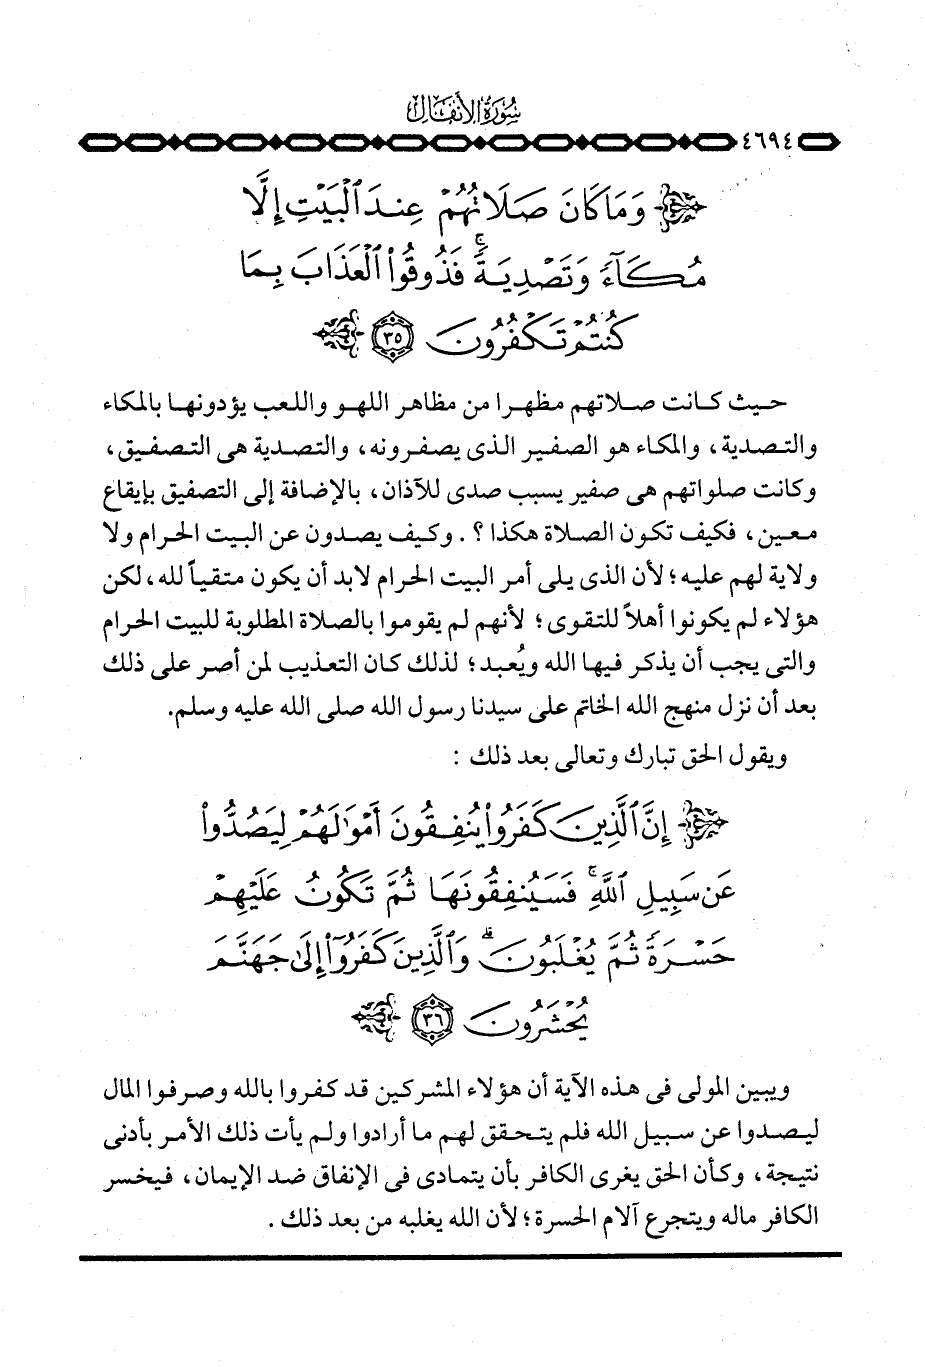 سُورَةُ الأَنْفَالِ
٤٦٩٤
وَمَا كَانَ صَلَاتُهُمْ عِندَ ٱلْبَيْتِ إِلَّا
مُكَآءً وَتَصْدِيَةً ۚ فَذُوقُوا۟ ٱلْعَذَابَ بِمَا
كُنتُمْ تَكْفُرُونَ ٣٥
حيث كانت صلاتهم مظهرا من مظاهر اللهو واللعب يؤدونها بالمكاء
والتصدية، والمكاء هو الصفير الذى يصفرونه، والتصدية هى التصفيق،
وكانت صلواتهم هى صفير يسبب صدى للآذان، بالإضافة إلى التصفيق بإيقاع
معين، فكيف تكون الصلاة هكذا ؟. وكيف يصدون عن البيت الحرام ولا
ولاية لهم عليه؛ لأن الذى يلى أمر البيت الحرام لابد أن يكون متقياً لله، لكن
هؤلاء لم يكونوا أهلاً للتقوى؛ لأنهم لم يقوموا بالصلاة المطلوبة للبيت الحرام
والتى يجب أن يذكر فيها الله ويُعبد؛ لذلك كان التعذيب لمن أصر على ذلك
بعد أن نزل منهج الله الخاتم على سيدنا رسول الله صلى الله عليه وسلم.
ويقول الحق تبارك وتعالى بعد ذلك :
إِنَّ ٱلَّذِينَ كَفَرُوا۟ يُنفِقُونَ أَمْوَٰلَهُمْ لِيَصُدُّوا۟
عَن سَبِيلِ ٱللَّهِ ۚ فَسَيُنفِقُونَهَا ثُمَّ تَكُونُ عَلَيْهِمْ
حَسْرَةً ثُمَّ يُغْلَبُونَ ۗ وَٱلَّذِينَ كَفَرُوٓا۟ إِلَىٰ جَهَنَّمَ
يُحْشَرُونَ ٣٦
ويبين المولى فى هذه الآية أن هؤلاء المشركين قد كفروا بالله وصرفوا المال
ليصدوا عن سبيل الله فلم يتحقق لهم ما أرادوا ولم يأت ذلك الأمر بأدنى
نتيجة، وكأن الحق يغرى الكافر بأن يتمادى فى الإنفاق ضد الإيمان، فيخسر
الكافر ماله ويتجرع آلام الحسرة؛ لأن الله يغلبه من بعد ذلك .